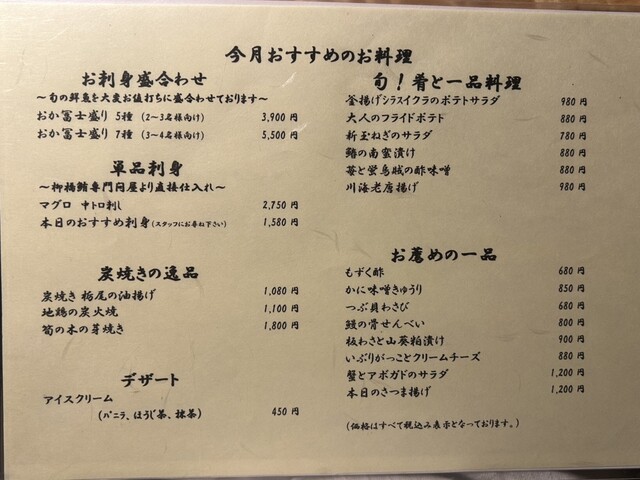 今月おすすめのお料理
お刺身盛合わせ
～旬の鮮魚を大変お値打ちに盛合わせております～
おか冨士盛り 5種 (2～3名様向け) 3,900 円
おか冨士盛り 7種 (3～4名様向け) 5,500 円
単品刺身
～柳橋鮪専門問屋より直接仕入れ～
マグロ 中トロ刺し 2,750 円
本日のおすすめ刺身(スタッフにお尋ね下さい) 1,580 円
炭焼きの逸品
炭焼き 栃尾の油揚げ 1,080 円
地鶏の炭火焼 1,100 円
筍の木の芽焼き 1,800 円
デザート
アイスクリーム
(バニラ、ほうじ茶、抹茶) 450 円
旬！肴と一品料理
釜揚げシラスイクラのポテトサラダ 980 円
大人のフライドポテト 880 円
新玉ねぎのサラダ 780 円
鯵の南蛮漬け 880 円
筍と蛍烏賊の酢味噌 880 円
川海老唐揚げ 980 円
お薦めの一品
もずく酢 680 円
かに味噌きゅうり 850 円
つぶ貝わさび 680 円
鰻の骨せんべい 800 円
板わさと山葵粕漬け 900 円
いぶりがっことクリームチーズ 880 円
蟹とアボガドのサラダ 1,200 円
本日のさつま揚げ 1,200 円
(価格はすべて税込み表示となっております。)